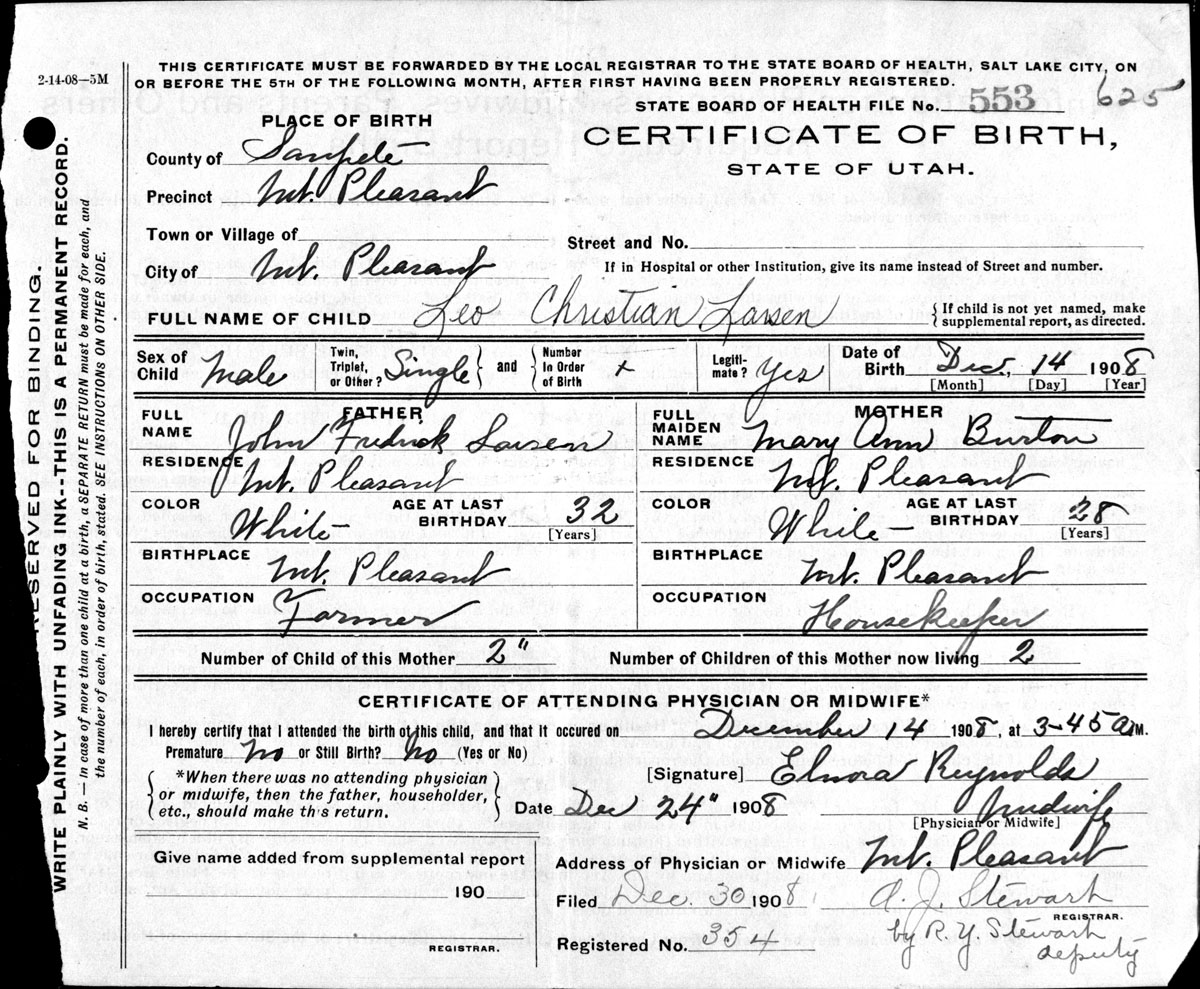 2-14-08—5M
THIS CERTIFICATE MUST BE FORWARDED BY THE LOCAL REGISTRAR TO THE STATE BOARD OF HEALTH, SALT LAKE CITY, ON
OR BEFORE THE 5TH OF THE FOLLOWING MONTH, AFTER FIRST HAVING BEEN PROPERLY REGISTERED.
STATE BOARD OF HEALTH FILE No. 553 625
PLACE OF BIRTH
CERTIFICATE OF BIRTH,
STATE OF UTAH.
County of Sanpete
Precinct Mt. Pleasant
Town or Village of
Street and No.
City of Mt. Pleasant
If in Hospital or other Institution, give its name instead of Street and number.
FULL NAME OF CHILD Leo Christian Larsen { If child is not yet named, make
supplemental report, as directed.
Sex of Child Male Twin, Triplet, or Other? Single } and { Number In Order of Birth + Legiti-mate? Yes Date of Birth Dec. 14 1908
[Month] [Day] [Year]
FATHER
FULL NAME John Fredrick Larsen
RESIDENCE Mt. Pleasant
COLOR White AGE AT LAST BIRTHDAY 32 [Years]
BIRTHPLACE Mt. Pleasant
OCCUPATION Farmer
MOTHER
FULL MAIDEN NAME Mary Ann Burton
RESIDENCE Mt. Pleasant
COLOR White AGE AT LAST BIRTHDAY 28 [Years]
BIRTHPLACE Mt. Pleasant
OCCUPATION Housekeeper
Number of Child of this Mother 2" Number of Children of this Mother now living 2
CERTIFICATE OF ATTENDING PHYSICIAN OR MIDWIFE*
I hereby certify that I attended the birth of this child, and that it occured on December 14 1908, at 3-45 a M.
Premature No or Still Birth? No (Yes or No)
{ *When there was no attending physician
or midwife, then the father, householder,
etc., should make th's return. }
[Signature] Elnora Reynolds
Date Dec 24" 1908 Midwife
[Physician or Midwife]
Give name added from supplemental report
190
REGISTRAR.
Address of Physician or Midwife Mt. Pleasant
Filed Dec. 30 1908, A. J. Stewart
REGISTRAR.
Registered No. 354 by R. Y. Stewart
deputy
RESERVED FOR BINDING.
WRITE PLAINLY WITH UNFADING INK--THIS IS A PERMANENT RECORD.
N. B. — In case of more than one child at a birth, a SEPARATE RETURN must be made for each, and
the number of each, in order of birth, stated. SEE INSTRUCTIONS ON OTHER SIDE.